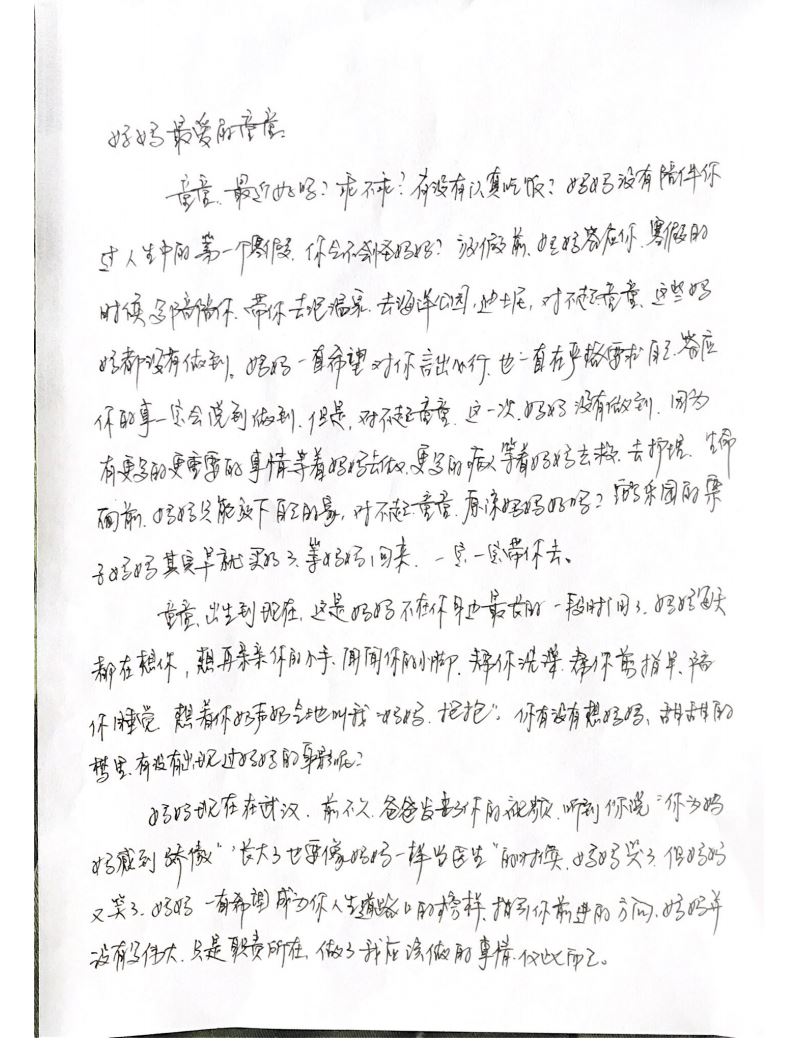 妈妈最爱的童童：
童童，最近好吗？乖不乖？有没有认真吃饭？妈妈没有陪伴你
过人生中的第一个寒假，你会不会怪妈妈？放假前，妈妈答应你，寒假的
时候多陪陪你，带你去泡温泉，去海洋公园，迪士尼，对不起童童，这些妈
妈都没有做到。妈妈一直希望对你言出必行，也一直在严格要求自己，答应
你的事一定会说到做到，但是，对不起童童，这一次，妈妈没有做到，因为
有更多的更重要的事情等着妈妈去做，更多的病人等着妈妈去救，去护理，生命
面前，妈妈只能放下自己的爱，对不起童童，原谅妈妈好吗？乐园的票
子妈妈其实早就买好了，等妈妈回来，一定一定带你去。
童童，出生到现在，这是妈妈不在你身边最长的一段时间了，妈妈每天
都在想你，想再亲亲你的小手，闻闻你的小脚，帮你洗澡，帮你剪指甲，陪
你睡觉，想着你奶声奶气地叫我“妈妈，抱抱”。你有没有想妈妈，甜甜的
梦里，有没有出现过妈妈的身影呢？
妈妈现在在武汉，前不久，爸爸发来了你的视频，听到你说“你为妈
妈感到骄傲”“长大了也要像妈妈一样当医生”的时候，妈妈哭了，但妈妈
又笑了，妈妈一直希望成为你人生道路上的榜样，指引你前进的方向，妈妈并
没有多伟大，只是职责所在，做了我应该做的事情，仅此而已。